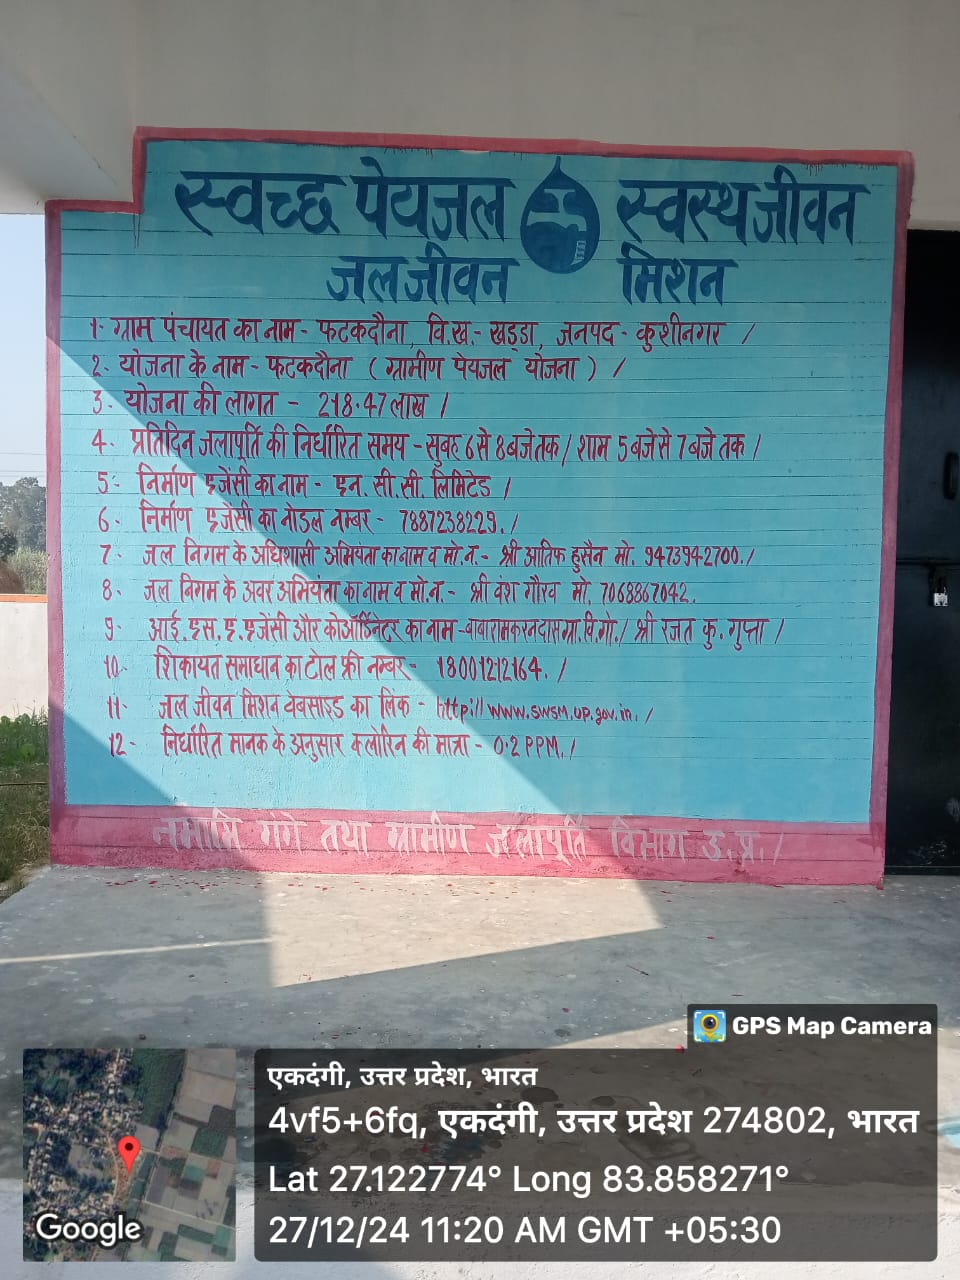 स्वच्छ पेयजल स्वस्थ जीवन
जल जीवन मिशन
1- ग्राम पंचायत का नाम - फटकदौना, वि.ख.- खड्डा, जनपद - कुशीनगर /
2- योजना के नाम - फटकदौना ( ग्रामीण पेयजल योजना ) /
3- योजना की लागत - 218.47 लाख /
4- प्रतिदिन जलापूर्ति की निर्धारित समय - सुबह 6 से 8 बजे तक / शाम 5 बजे से 7 बजे तक /
5- निर्माण एजेंसी का नाम - एन. सी. सी. लिमिटेड /
6- निर्माण एजेंसी का नोडल नम्बर - 7887238229. /
7- जल निगम के अधिशासी अभियंता का नाम व मो.न.- श्री आतिफ हुसैन मो. 9473942700. /
8- जल निगम के अवर अभियंता का नाम व मो.न.- श्री वंश गौरव मो. 7068867042.
9- आई.एस.ए.एजेंसी और कोऑर्डिनेटर का नाम - बाबा रामकरन दास ग्रा.वि.गो. / श्री रजत कु. गुप्ता /
10- शिकायत समाधान का टोल फ्री नम्बर - 18001212164. /
11- जल जीवन मिशन वेबसाइड का लिंक - http://www.swsm.up.gov.in. /
12- निर्धारित मानक के अनुसार क्लोरिन की मात्रा - 0.2 PPM. /
नमामि गंगे तथा ग्रामीण जलापूर्ति विभाग उ.प्र. /
GPS Map Camera
एकदंगी, उत्तर प्रदेश, भारत
4vf5+6fq, एकदंगी, उत्तर प्रदेश 274802, भारत
Lat 27.122774° Long 83.858271°
27/12/24 11:20 AM GMT +05:30
Google